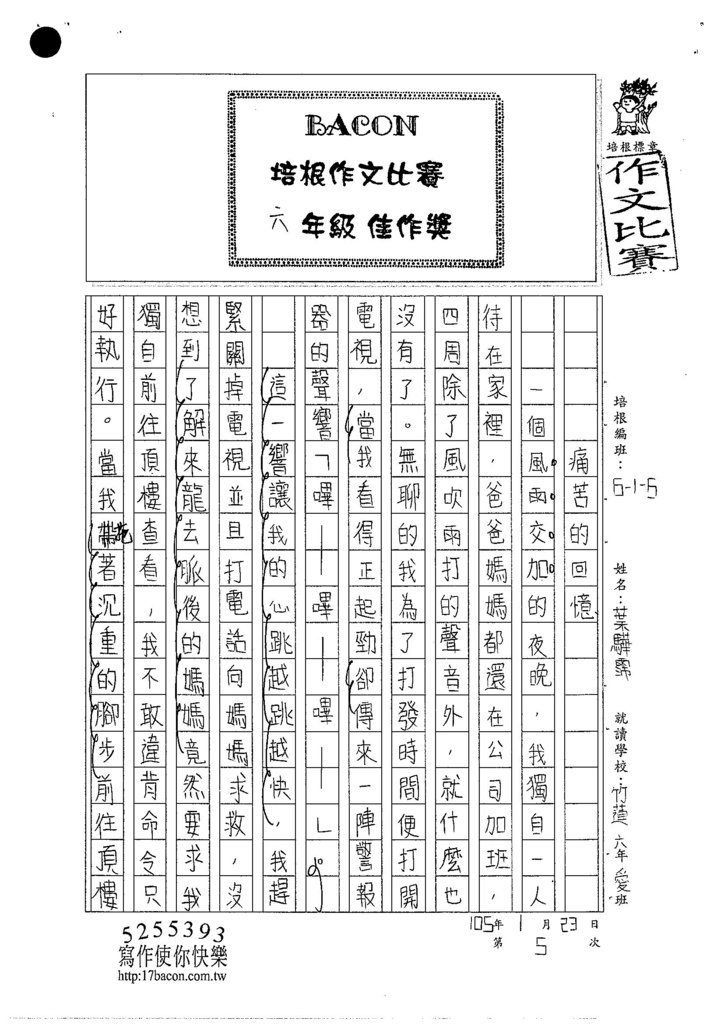 BACON
培根作文比賽
六年級 佳作獎
培根標章
作文比賽
培根編班：6-1-5
姓名：葉驊
就讀學校：竹蓮 六年愛班
痛苦的回憶
一個風雨交加的夜晚，我獨自一人
待在家裡，爸爸媽媽都還在公司加班，
四周除了風吹雨打的聲音外，就什麼也
沒有了。無聊的我為了打發時間便打開
電視，當我看得正起勁卻傳來一陣警報
器的聲響「嗶——嗶——嗶——」。
這一響讓我的心跳越跳越快，我趕
緊關掉電視並且打電話向媽媽求救，沒
想到了解來龍去脈後的媽媽竟然要求我
獨自前往頂樓查看，我不敢違背命令只
好執行。當我拖著沉重的腳步前往頂樓
105年1月23日
第5次
5255393
寫作使你快樂
http:17bacon.com.tw